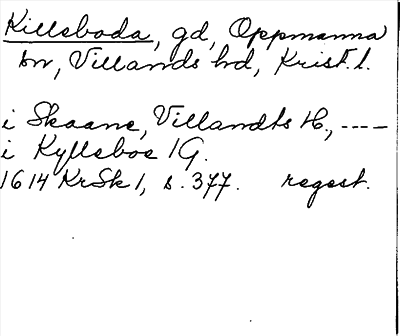 Killeboda, gd, Oppmanna
sn, Villands hd, Krist. l.
i Skaane, Villandts H., ----
i Kylleboe 1G.
1614 KrSk 1, s. 377. regest.